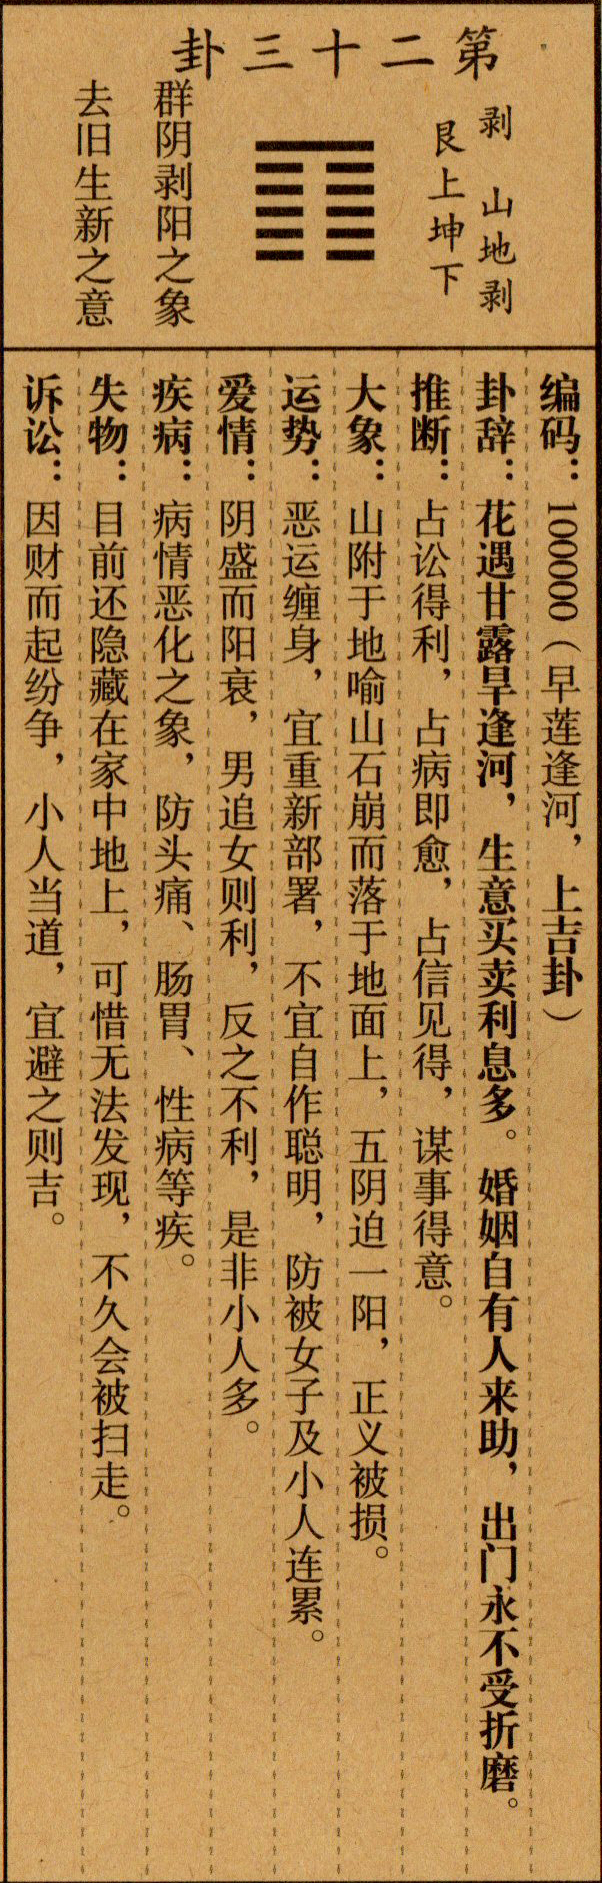 第二十三卦
剥 山地剥
艮上坤下
群阴剥阳之象
去旧生新之意
编码：100000（旱莲逢河，上吉卦）
卦辞：花遇甘露旱逢河，生意买卖利息多。婚姻自有人来助，出门永不受折磨。
推断：占讼得利，占病即愈，占信见得，谋事得意。
大象：山附于地喻山石崩而落于地面上，五阴迫一阳，正义被损。
运势：恶运缠身，宜重新部署，不宜自作聪明，防被女子及小人连累。
爱情：阴盛而阳衰，男追女则利，反之不利，是非小人多。
疾病：病情恶化之象，防头痛、肠胃、性病等疾。
失物：目前还隐藏在家中地上，可惜无法发现，不久会被扫走。
诉讼：因财而起纷争，小人当道，宜避之则吉。